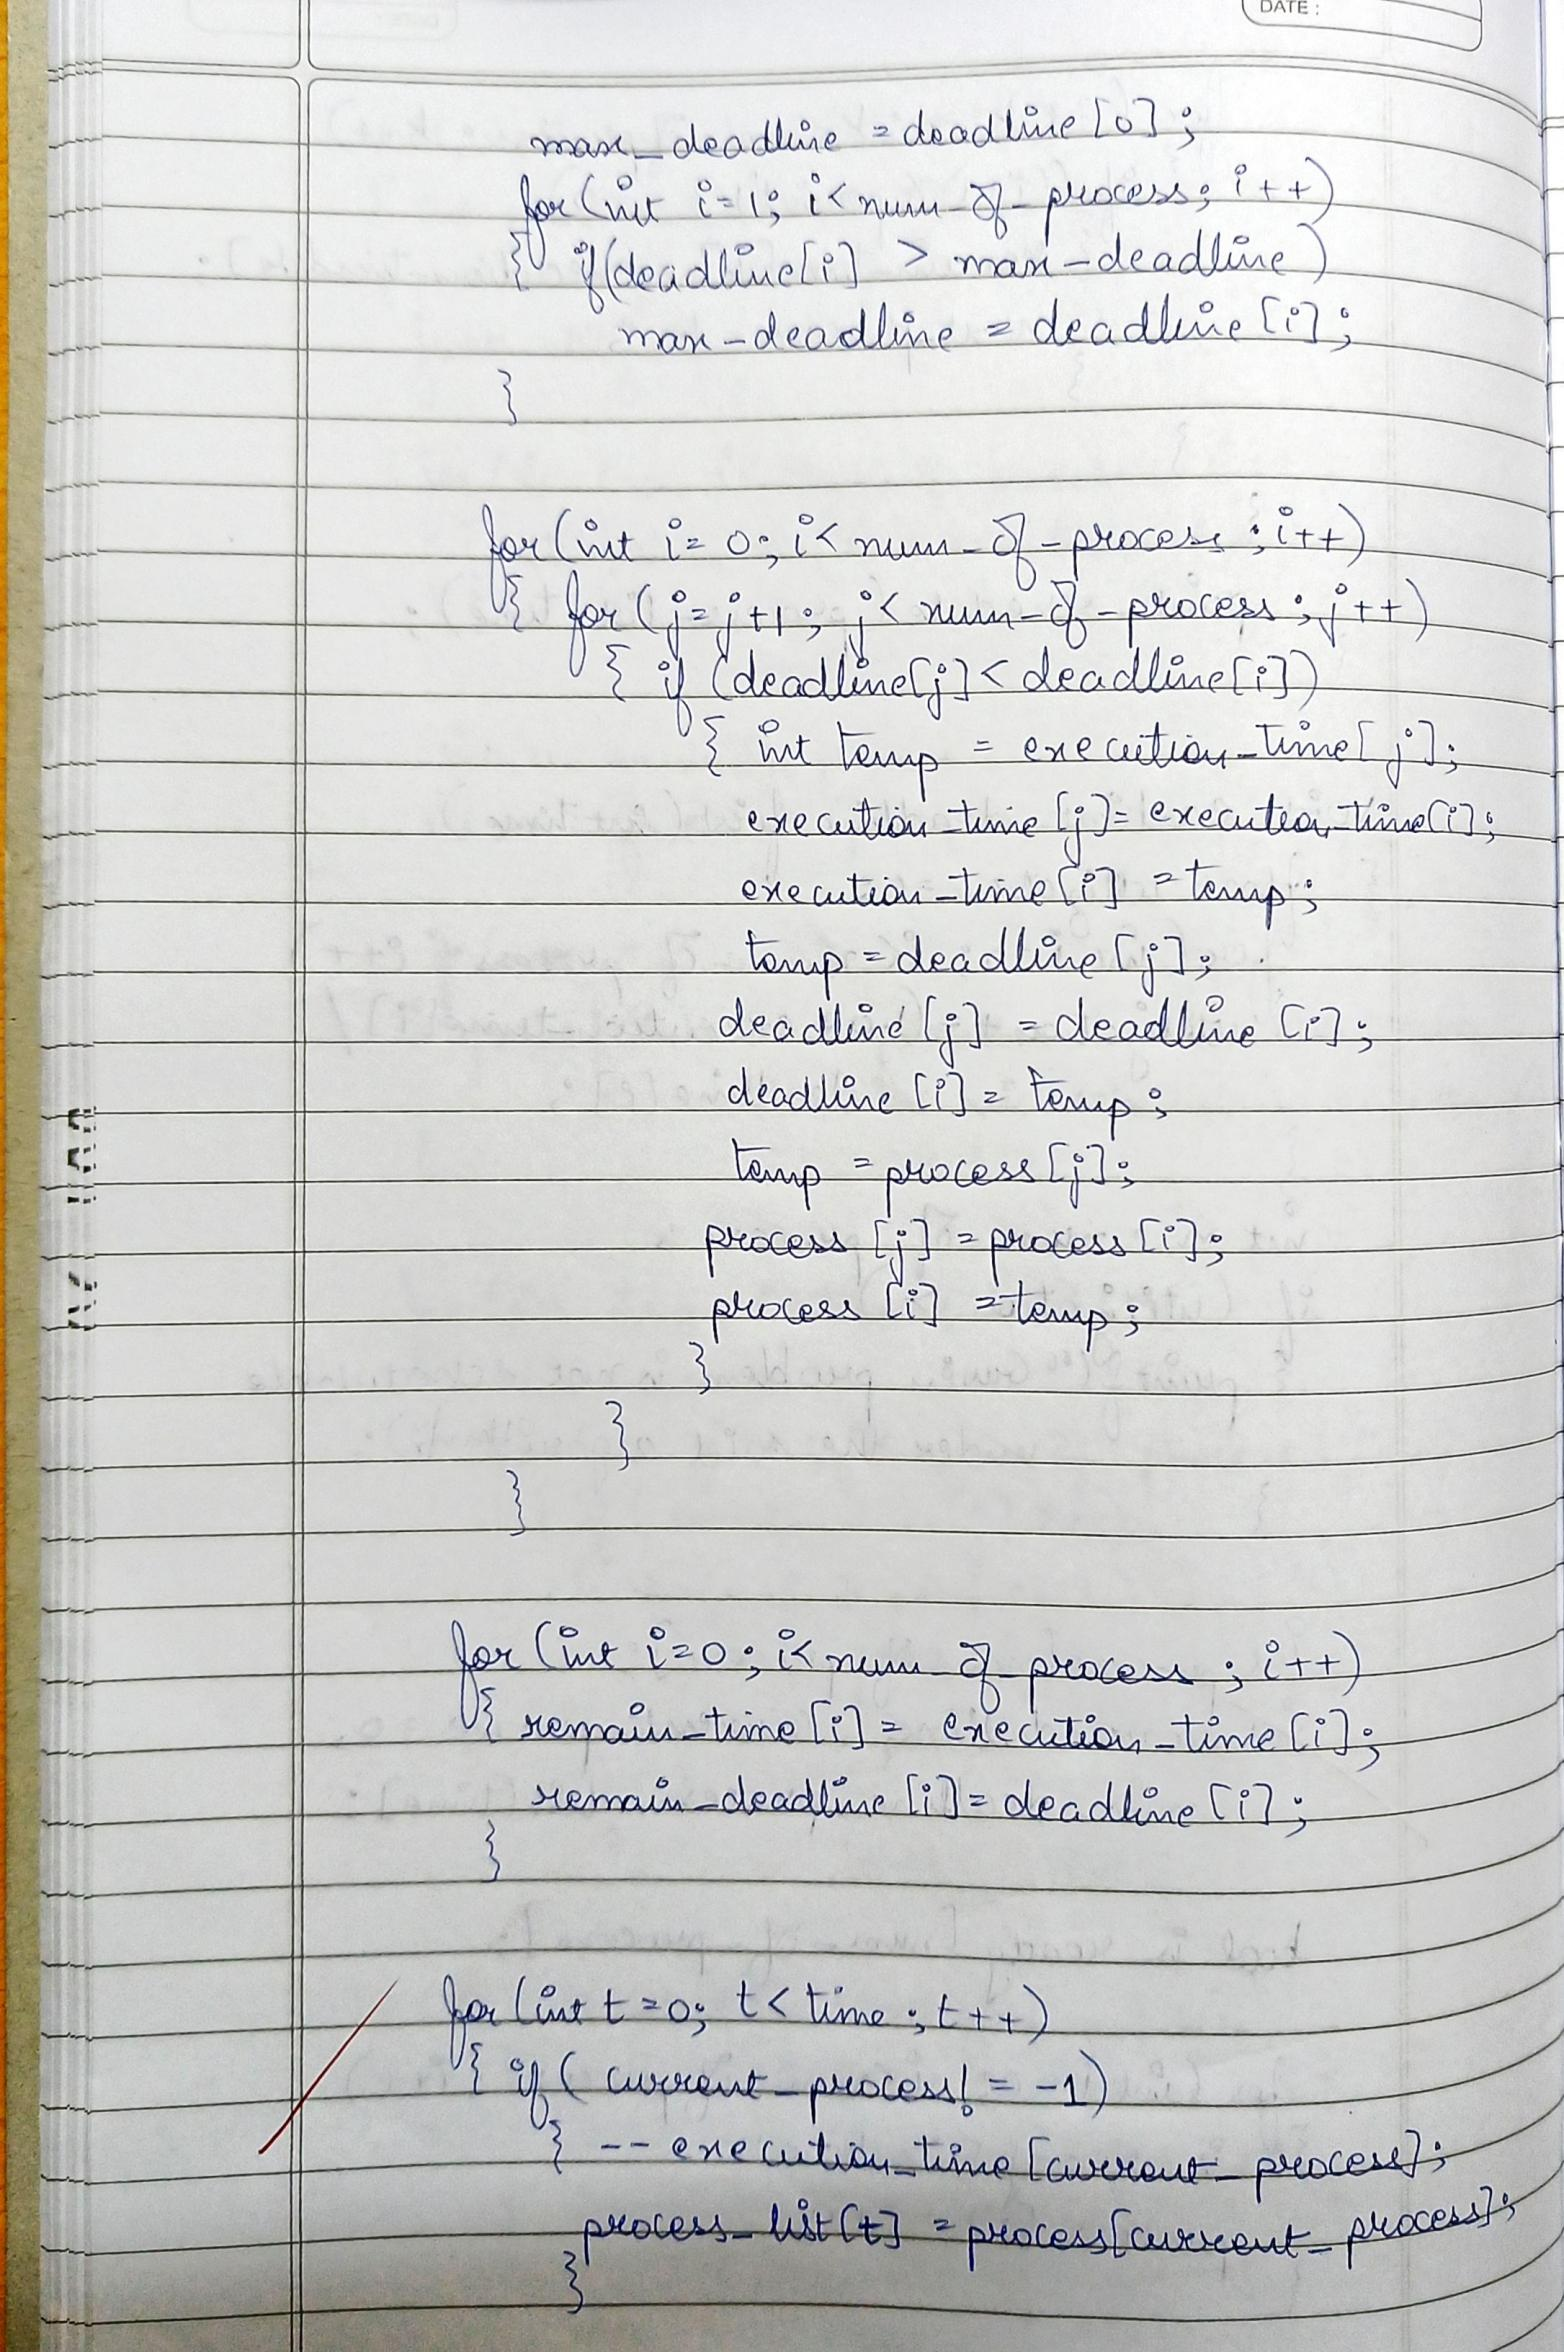 DATE :
max_deadline = deadline[0];
for(int i=1; i<num_of_process; i++)
{ if(deadline[i] > max-deadline)
max-deadline = deadline[i];
}
for(int i=0; i<num_of-process; i++)
{ for(j=j+1; j<num-of-process; j++)
{ if (deadline[j]<deadline[i])
{ int temp = execution_time[j];
execution_time[j]= execution_time[i];
execution_time[i] = temp;
temp = deadline[j];
deadline[j] = deadline[i];
deadline[i] = temp;
temp = process[j];
process[j] = process[i];
process[i] = temp;
}
}
}
for(int i=0; i<num_of_process; i++)
{ remain_time[i] = execution_time[i];
remain_deadline[i] = deadline[i];
}
for(int t=0; t<time; t++)
{ if( current_process! = -1)
{ --execution_time[current_process];
process_list[t] = process[current_process];
}